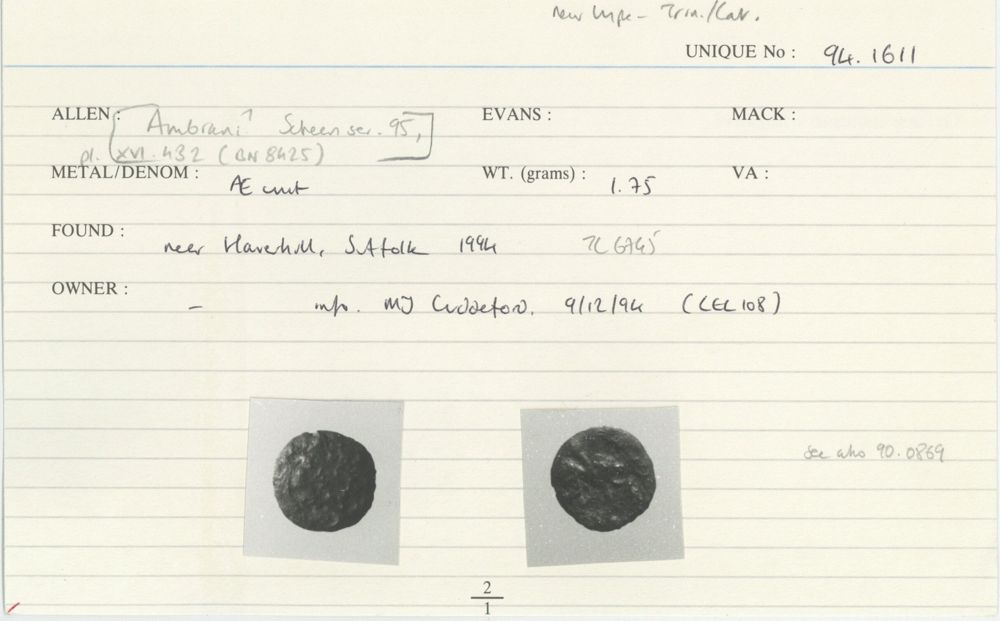 new type - Trin./Cat.
UNIQUE No : 94.1611
ALLEN : Ambiani Scheers ser. 95, EVANS : MACK :
pl. XVI.432 (BN 8425)
METAL/DENOM : Æ unit WT. (grams) : 1.75 VA :
FOUND : near Haverhill, Suffolk 1994 TL 6745
OWNER : - info. MJ Cuddeford. 9/12/94 (CEL108)
see also 90.0869
2
1